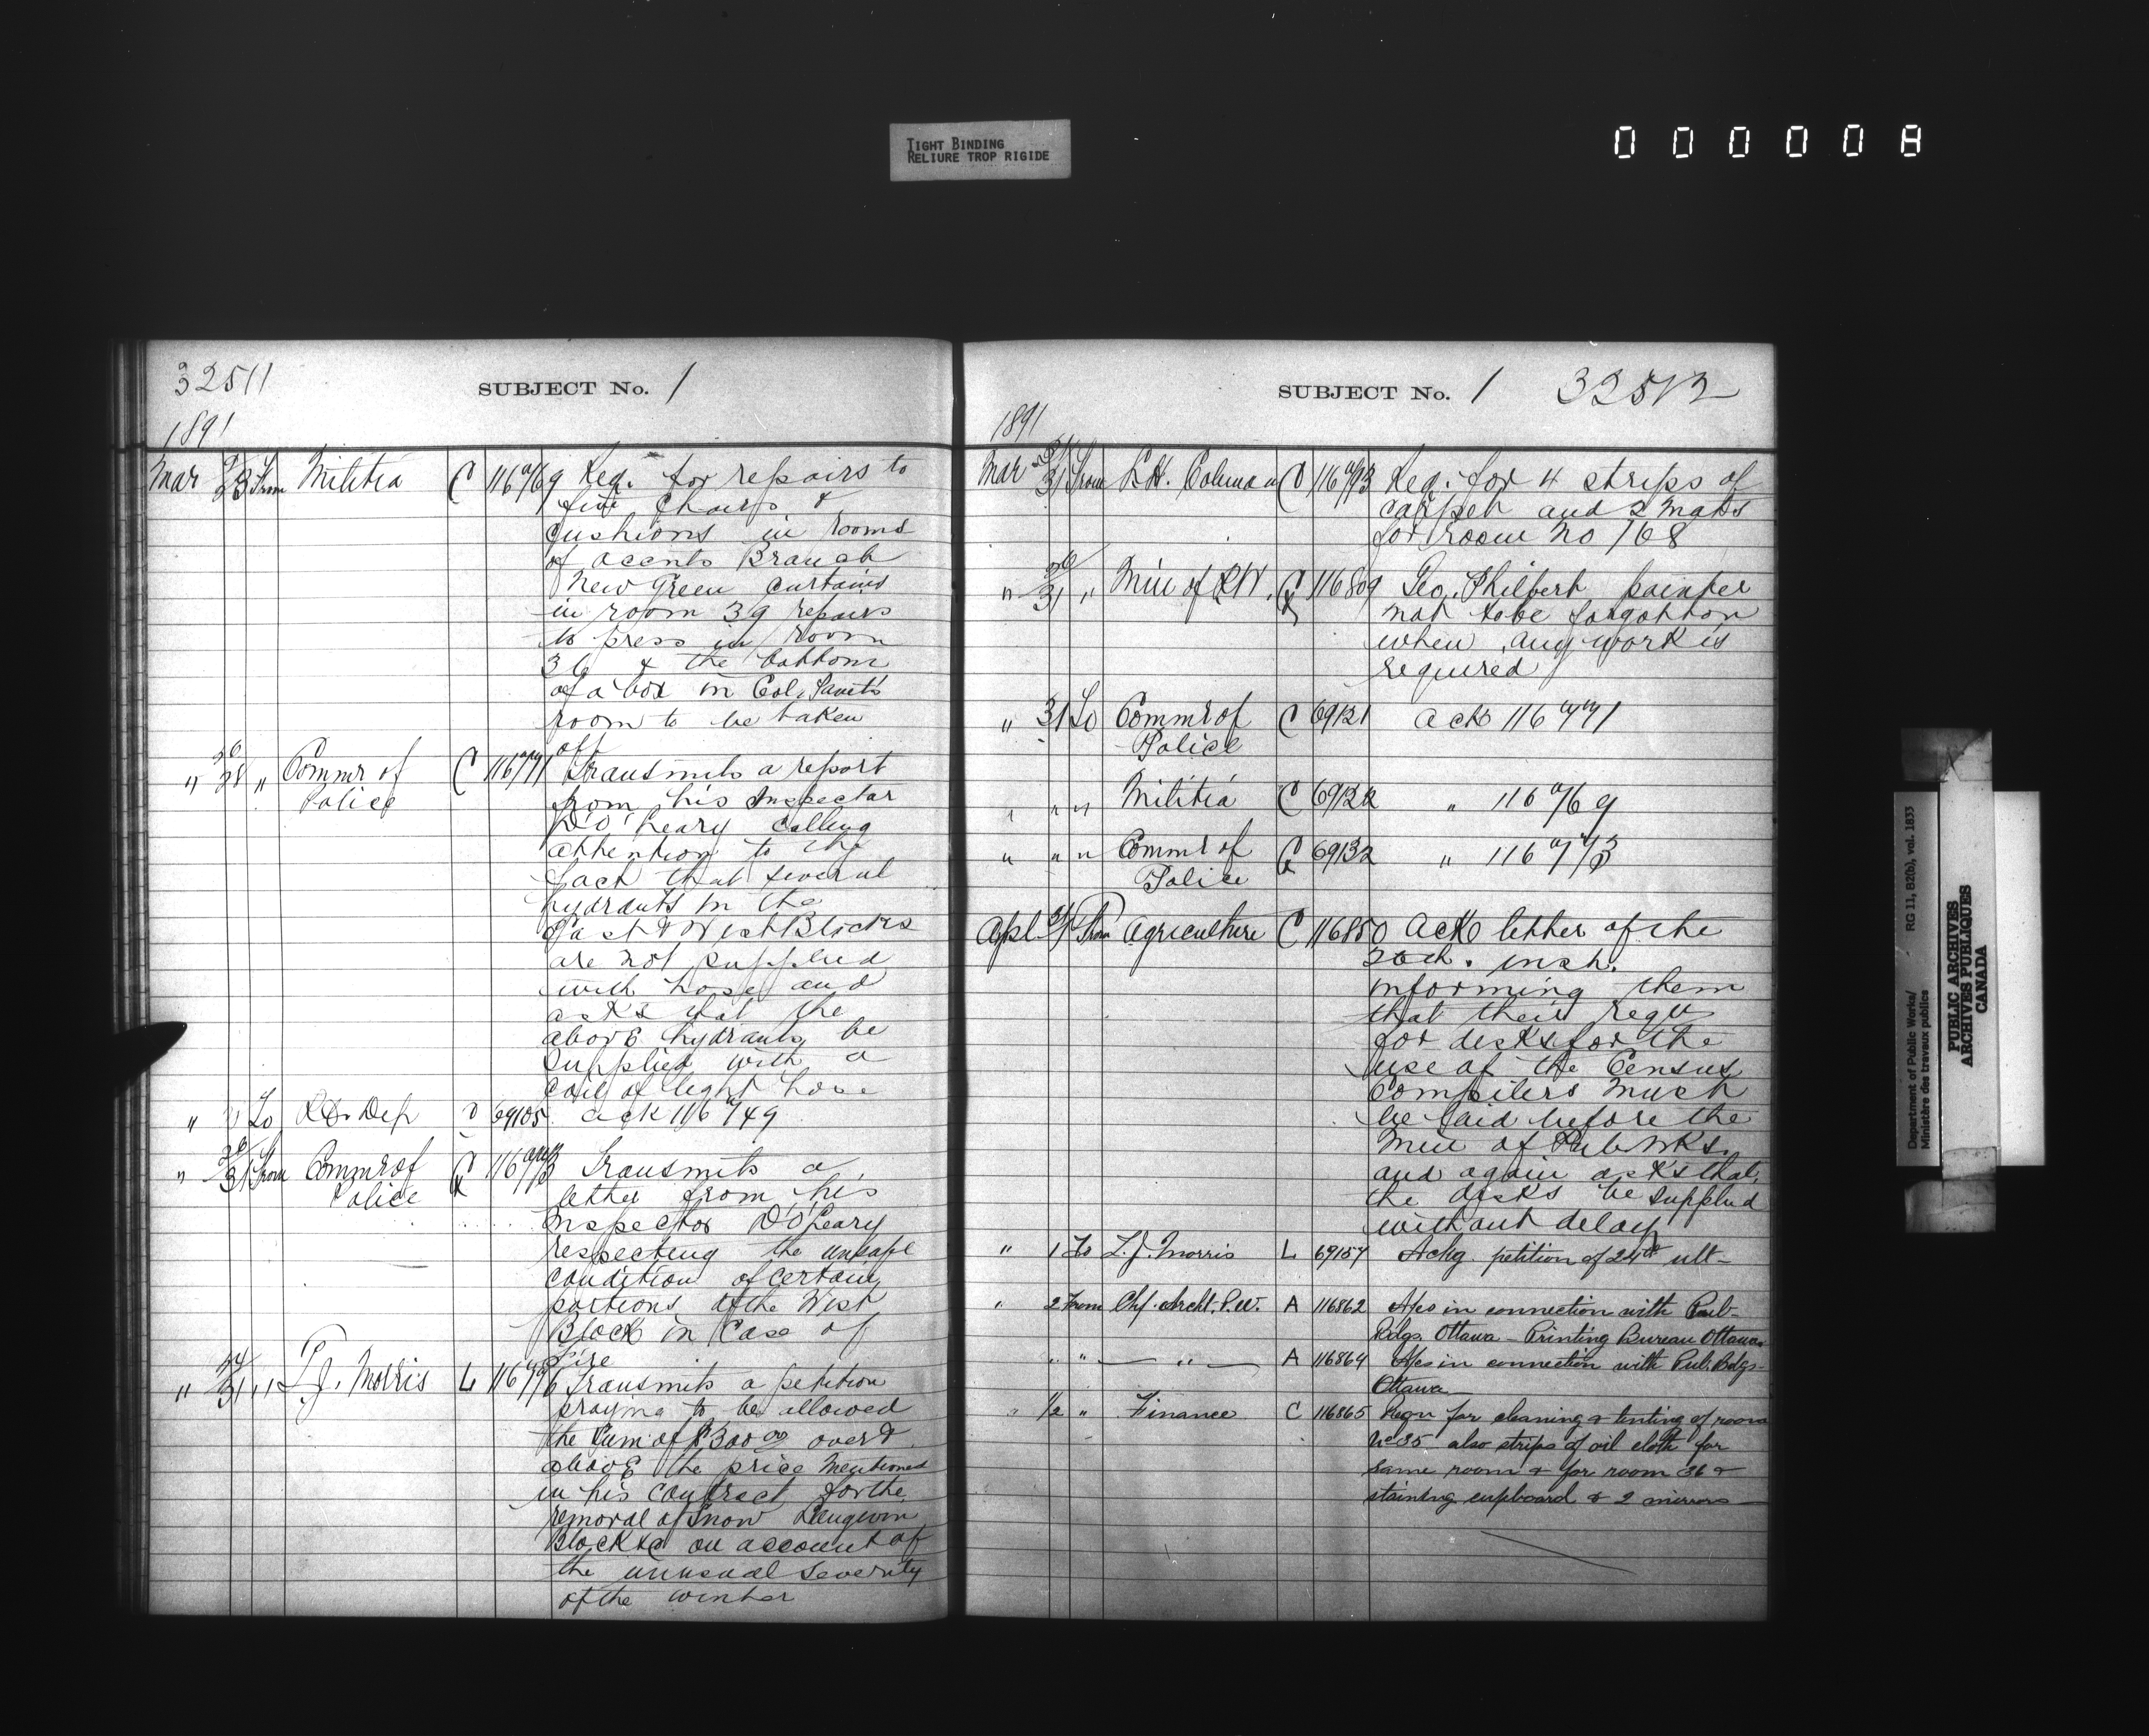 TIGHT BINDING
RELIURE TROP RIGIDE
000008
32511
SUBJECT No. 1
1891
Mar 28 From Militia C 116769 Req. for repairs to
five chairs &
cushions in rooms
of accnts Branch
New Green curtains
in room 39 repairs
to press in room
36 & the bottom
of a box in Col.
room to be taken
off
" 26/28 " Commr of C 116771 Transmits a report
Police from his Inspector
D O'Leary calling
attention to the
fact that several
hydrants in the
East & West Blocks
are not supplied
with hose and
asks that the
above hydrants be
supplied with a
coil of light hose
" To Dep 69105 ack 116749
" 31 From Commr of C 116773 Transmits a
Police letter from his
Inspector D O'Leary
respecting the unsafe
condition of certain
portions of the West
Block in case of
fire
" 24/31 " L J. Morris L 116796 Transmits a petition
praying to be allowed
the sum of $300 00 over &
above the price mentioned
in his contract for the
removal of snow Langevin
Block &c on account of
the unusual severity
of the winter
SUBJECT No. 1 32512
1891
Mar 31 From Coleman C 116793 Req. for 4 strips of
carpet and 2 mats
for room No 168
" 31 " Min of P.W. C 116809 Geo. Philbert painter
not to be forgotton
when any work is
required
" 31 To Commr of C 69121 ack 116771
Police
" " " Militia C 69122 " 116769
" " " Commr of C 69132 " 116773
Police
Apl. 31/1 From Agriculture C 116850 Ack letter of the
inst.
informing them
that their reqn
for desks for the
use of the Census
Compilers must
be laid before the
Min of Pub Wks.
and again asks that
the desks be supplied
without delay
" 1 To L. J. Morris L 69157 Ackg. petition of 24th ult-
" 2 From Chf. Archt. P.W. A 116862 A/cs in connection with Pub-
Bdgs. Ottawa - Printing Bureau Ottawa
" " — " — A 116864 A/cs in connection with Pub. Bdgs-
Ottawa
" 1/2 " Finance C 116865 Reqn for cleaning & tinting of room
No 35 also strips of oil cloth for
same room & for room 36 &
staining cupboard & 2 mirrors
Department of Public Works/
Ministère des travaux publics
RG 11, B2(b), vol. 1833
PUBLIC ARCHIVES
ARCHIVES PUBLIQUES
CANADA